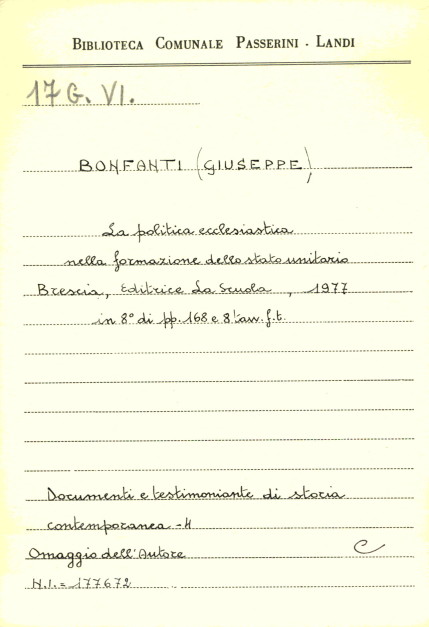 BIBLIOTECA COMUNALE PASSERINI - LANDI
17 G. VI.
BONFANTI (GIUSEPPE)
La politica ecclesiastica
nella formazione dello stato unitario
Brescia, Editrice La Scuola, 1977
in 8° di pp. 168 e 8 tav. f.t.
Documenti e testimonianze di storia
contemporanea - 4
Omaggio dell'Autore C
N.I. = 177672